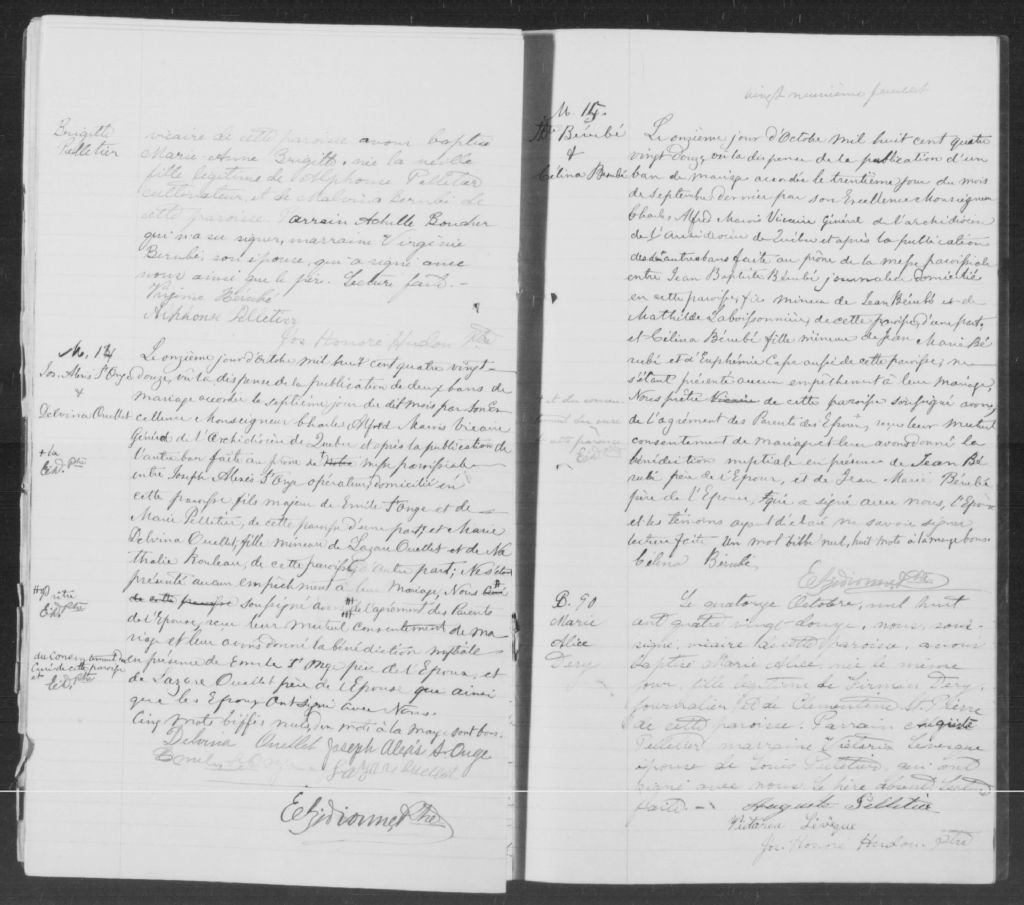 Brigitte
Pelletier
vicaire de cette paroisse avons baptisé
Marie-Anne Brigitte, née la veille
fille légitime de Alphonse Pelletier
cultivateur, et de Malvina Bérubé de
cette paroisse. Parrain Achille Boucher
qui n'a su signer, marraine Virginie
Bérubé, son épouse, qui a signé avec
nous ainsi que le père. Lecture faite. -
Virginie Bérubé
Alphonse Pelletier
Jos Honoré Hudon Ptre
M. 14
Jos. Alexis St Onge
&
Delvina Ouellet
Le onzième jour d'Octobre mil huit cent quatre vingt-
douze, vû la dispense de la publication de deux bans de
mariage accordée le septième jour du dit mois par Son Ex-
cellence Monseigneur Charles Alfred Marois Vicaire
Général de l'Archidiocèse de Québec et après la publication de
l'autre ban faite au prône de Notre messe paroissiale
entre Joseph Alexis St Onge opérateur, domicilié en
cette paroisse fils majeur de Emile St Onge et de
Marie Pelletier, de cette paroisse d'une part, et Marie
Delvina Ouellet, fille mineure de Lazare Ouellet et de Na-
thalie Rouleau, de cette paroisse, d'autre part; Ne s'étant
présenté aucun empêchement à leur mariage, Nous Curé
de cette paroisse soussigné avons de l'agrément des Parents
de l'Epouse, reçu leur mutuel consentement de ma-
riage et leur avons donné la bénédiction nuptiale
en présence de Emile St Onge père de l'Epoux, et
de Lazare Ouellet père de l'Epouse que ainsi
que les Epoux ont signé avec Nous.
Cinq mots biffés nuls, mots à la marge sont bons.
+ la
Ptre
# prêtre
Ptre
du consentement du
Curé de cette paroisse
et
Ptre
Delvina Ouellet Joseph Alexis St Onge
Emile St Onge Lazare Ouellet
E. Gidionne, Ptre
vingt neuvième feuillet
M. 15.
Bérubé
&
Célina Bérubé
Le onzième jour d'Octobre mil huit cent quatre
vingt douze vû la dispense de la publication d'un
ban de mariage accordée le trentième jour du mois
de septembre dernier par son Excellence Monseigneur
Charles Alfred Marois Vicaire Général de l'archidiocèse
de l'Archidiocèse de Québec et après la publication
des deux autres bans faite au prône de la messe paroissiale
entre Jean Baptiste Bérubé journalier domicilié
en cette paroisse, fils mineur de Jean Bérubé et de
Mathilde Laboissonnière, de cette paroisse, d'une part,
et Célina Bérubé fille mineure de Jean Marie Bé-
rubé et d'Euphémie aussi de cette paroisse, ne
s'étant présenté aucun empêchement à leur mariage,
Nous prêtre Vicaire de cette paroisse soussigné avons,
de l'agrément des Parents des Epoux, reçu leur mutuel
consentement de mariage et leur avons donné la
bénédiction nuptiale en présence de Jean Bé-
rubé père de l'Epoux, et de Jean Marie Bérubé
père de l'Epouse, qui a signé avec nous, l'Epoux
et les témoins ayant déclaré ne savoir signer
lecture faite Un mot biffé nul, huit mots à la marge bons
Célina Bérubé
E. Gidionne Ptre
et du consen-
tement du curé
de cette paroisse
Ptre
B. 90
Marie
Alice
Dery
Le quatorze Octobre, mil huit
cent quatre vingt douze, nous, sous-
signé, vicaire de cette paroisse, avons
baptisé Marie Alice, née le même
jour, fille légitime de Firmin Dery,
journalier et de Clementine St Pierre
de cette paroisse. Parrain Auguste
Pelletier marraine Victoria Levesque
épouse de Louis Pelletier, qui ont
signé avec nous, le père absent. Lecture
faite -
Auguste Pelletier
Victoria Lévêque
Jos. Honoré Hudon, Ptre